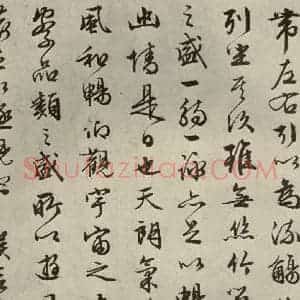 帶左右引以為流觴
列坐其次雖無絲竹
之盛一觴一詠亦足以暢
幽情是日也天朗氣
風和暢仰觀宇宙之
察品類之盛所以遊
足以極視聽